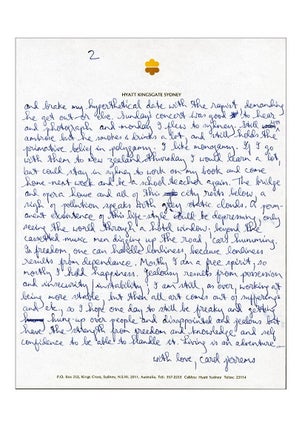 2
HYATT KINGSGATE SYDNEY
and broke my hypothetical date with the rapist, demanding
he get out or else. Sunday's concert was good to hear
and photograph and monday I flew to sydney. Still
ambrose but he smokes a lot, and still holds the
primative belief in polygamy. I like monogamy. If I go
with them to new zealand thursday I would learn a lot
but could stay in sydney to work on my book and come
home next week and be a school teacher again. The bridge
and opera house and all of this city rests below, a
sigh of pollution speaks with grey static clouds. A
existence of this life-style would be depressing, only
seeing the world through a hotel window. beyond the
cassetted music men digging up the road, cars humming.
In freedom one can handle loneliness, because loneliness
results from dependance. Mostly I am a free spirit, so
mostly I hold happiness. Jealousy results from possession
and insecurity/instability; I am still, as ever, working at
being more stable but then all art comes out of suffering
and etc, so I hope one day to still be freaky and getting
hung-up over people and disappointed and jealous but
have the strength from freedom and knowledge and self
confidence to be able to handle it. Living is an adventure...
with love, carol jerrems
P.O. Box 250, Kings Cross, Sydney, N.S.W. 2011, Australia. Tel: 357-2233 Cables: Hyatt Sydney Telex: 23114